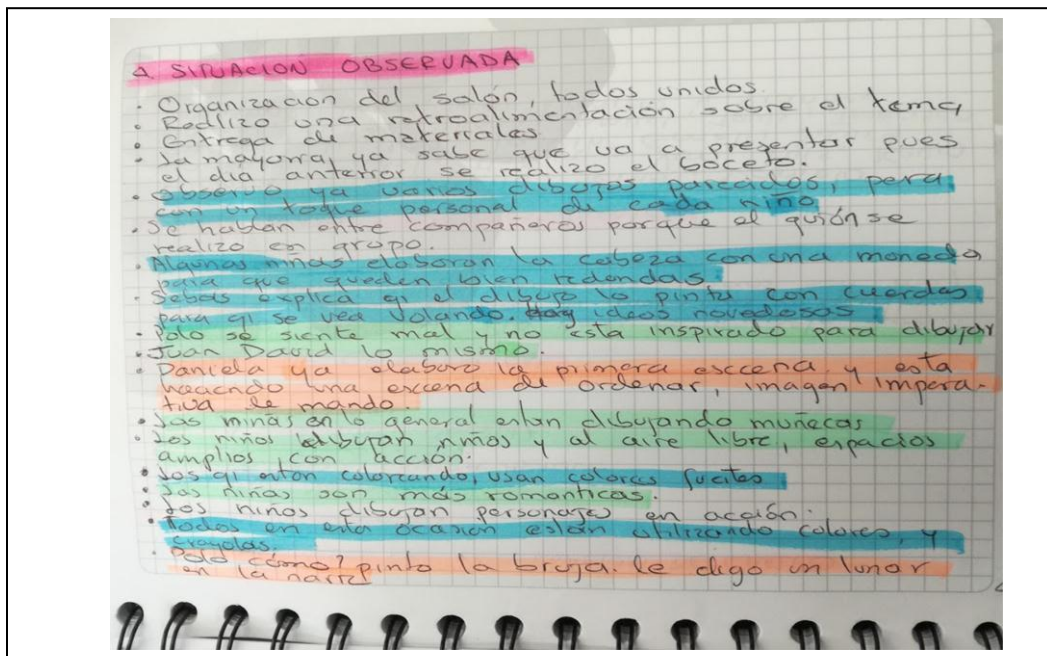 A. SITUACION OBSERVADA
· Organizacion del salón, todos unidos.
· Realizo una retroalimentación sobre el tema,
· Entrega de materiales.
· La mayoria, ya sabe que va a presentar pues
el dia anterior se realizo el boceto.
· Observo ya varios dibujos parecidos, pero
con un toque personal de cada niño
· Se hablan entre compañeros porque el guión se
realizo en grupo.
· Algunas niñas elaboran la cabeza con una moneda
para que queden bien redondas
· Sebas explica qi el dibujo lo pinta con cuerdas
para qi se vea volando. Hay ideas novedosas
· Polo se siente mal y no esta inspirado para dibujar
· Juan David lo mismo.
· Daniela ya elaboro la primera esccena y esta
haciendo una escena de ordenar, imagen impera-
tiva de mando.
· Las niñas en lo general estan dibujando muñecas
· Los niños dibujan niños y al aire libre, espacios
amplios con acción.
· Los qi estan coloreando, usan colores fuertes
· Las niñas son más romanticas.
· Los niños dibujan personajes en acción.
· Todos en esta ocasión están utilizando colores, y
crayolas.
· Polo cómo? pinto la bruja. le digo un lunar
en la nariz